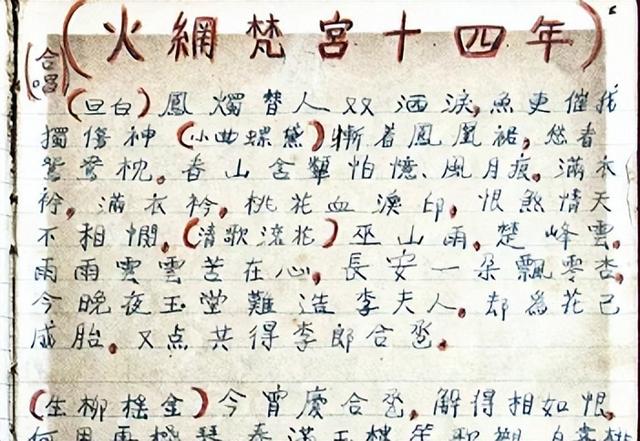 (火網梵宮十四年)
(合唱)
(旦白)鳳燭替人双洒淚,魚更催我
獨傷神(小曲螺黛)慚着鳳凰裙,愁看
鴛鴦枕。春山含顰怕憶、風月痕。滿衣
衿,滿衣衿,桃花血淚印,恨煞情天
不相憫,(清歌滾花)巫山雨,楚峰雲,
雨雨雲雲苦在心,長安一朵飄零杏,
今晚夜玉堂難造李夫人,却為花己
成胎,又点共得李郎合卺,
(生柳榣金)今宵慶合卺,解得相如恨,